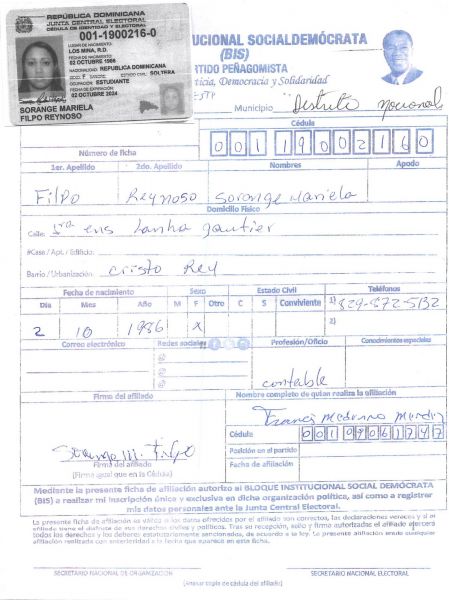 REPÚBLICA DOMINICANA
JUNTA CENTRAL ELECTORAL
CÉDULA DE IDENTIDAD Y ELECTORAL
001-1900216-0
LUGAR DE NACIMIENTO:
LOS MINA, R.D.
FECHA DE NACIMIENTO:
02 OCTUBRE 1986
NACIONALIDAD: REPUBLICA DOMINICANA
SEXO: F SANGRE: ESTADO CIVIL: SOLTERA
OCUPACIÓN: ESTUDIANTE
FECHA DE EXPIRACIÓN:
02 OCTUBRE 2024
SORANGE MARIELA
FILPO REYNOSO
UCIONAL SOCIALDEMÓCRATA
(BIS)
RTIDO PEÑAGOMISTA
ticia, Democracia y Solidaridad
Municipio Distrito nacional
Cédula
Número de ficha 00119002160
1er. Apellido 2do. Apellido Nombres Apodo
Filpo Reynoso Sorange Mariela
Domicilio Físico
Calle: 1ra ens
#Case / Apt. / Edificio:
Barrio / Urbanización: Cristo Rey
Fecha de nacimiento Sexo Estado Civil Teléfonos
Día Mes Año M F Otro C S Conviviente 1) 829-872-5132
2 10 1986 X 2)
Correo electrónico Redes sociales Profesión/Oficio Conocimientos especiales
@
@
@ contable
Firma del afiliado Nombre completo de quien realiza la afiliación
Cédula 00109061747
Posición en el partido
Firma del afiliado Fecha de afiliación
(Firma igual que en la Cédula)
Mediante la presente ficha de afiliación autorizo al BLOQUE INSTITUCIONAL SOCIAL DEMÓCRATA
(BIS) a realizar mi inscripción única y exclusiva en dicha organización política, así como a registrar
mis datos personales ante la Junta Central Electoral.
La presente ficha de afiliación es válida si los datos ofrecidos por el afiliado son correctos, las declaraciones veraces y si el
afiliado está al disfrute de sus derechos civiles y políticos. Tras su recepción, sello y firma autorizadas el afiliado ejercerá
todos los derechos y los deberes estatutariamente sancionados, de acuerdo a la ley. La presente afiliación anula cualquier
afiliación realizada con anterioridad a la fecha que aparece en esta ficha.
SECRETARIO NACIONAL DE ORGANIZACIÓN SECRETARIO NACIONAL ELECTORAL
(Anexar copia de cédula del afiliado)